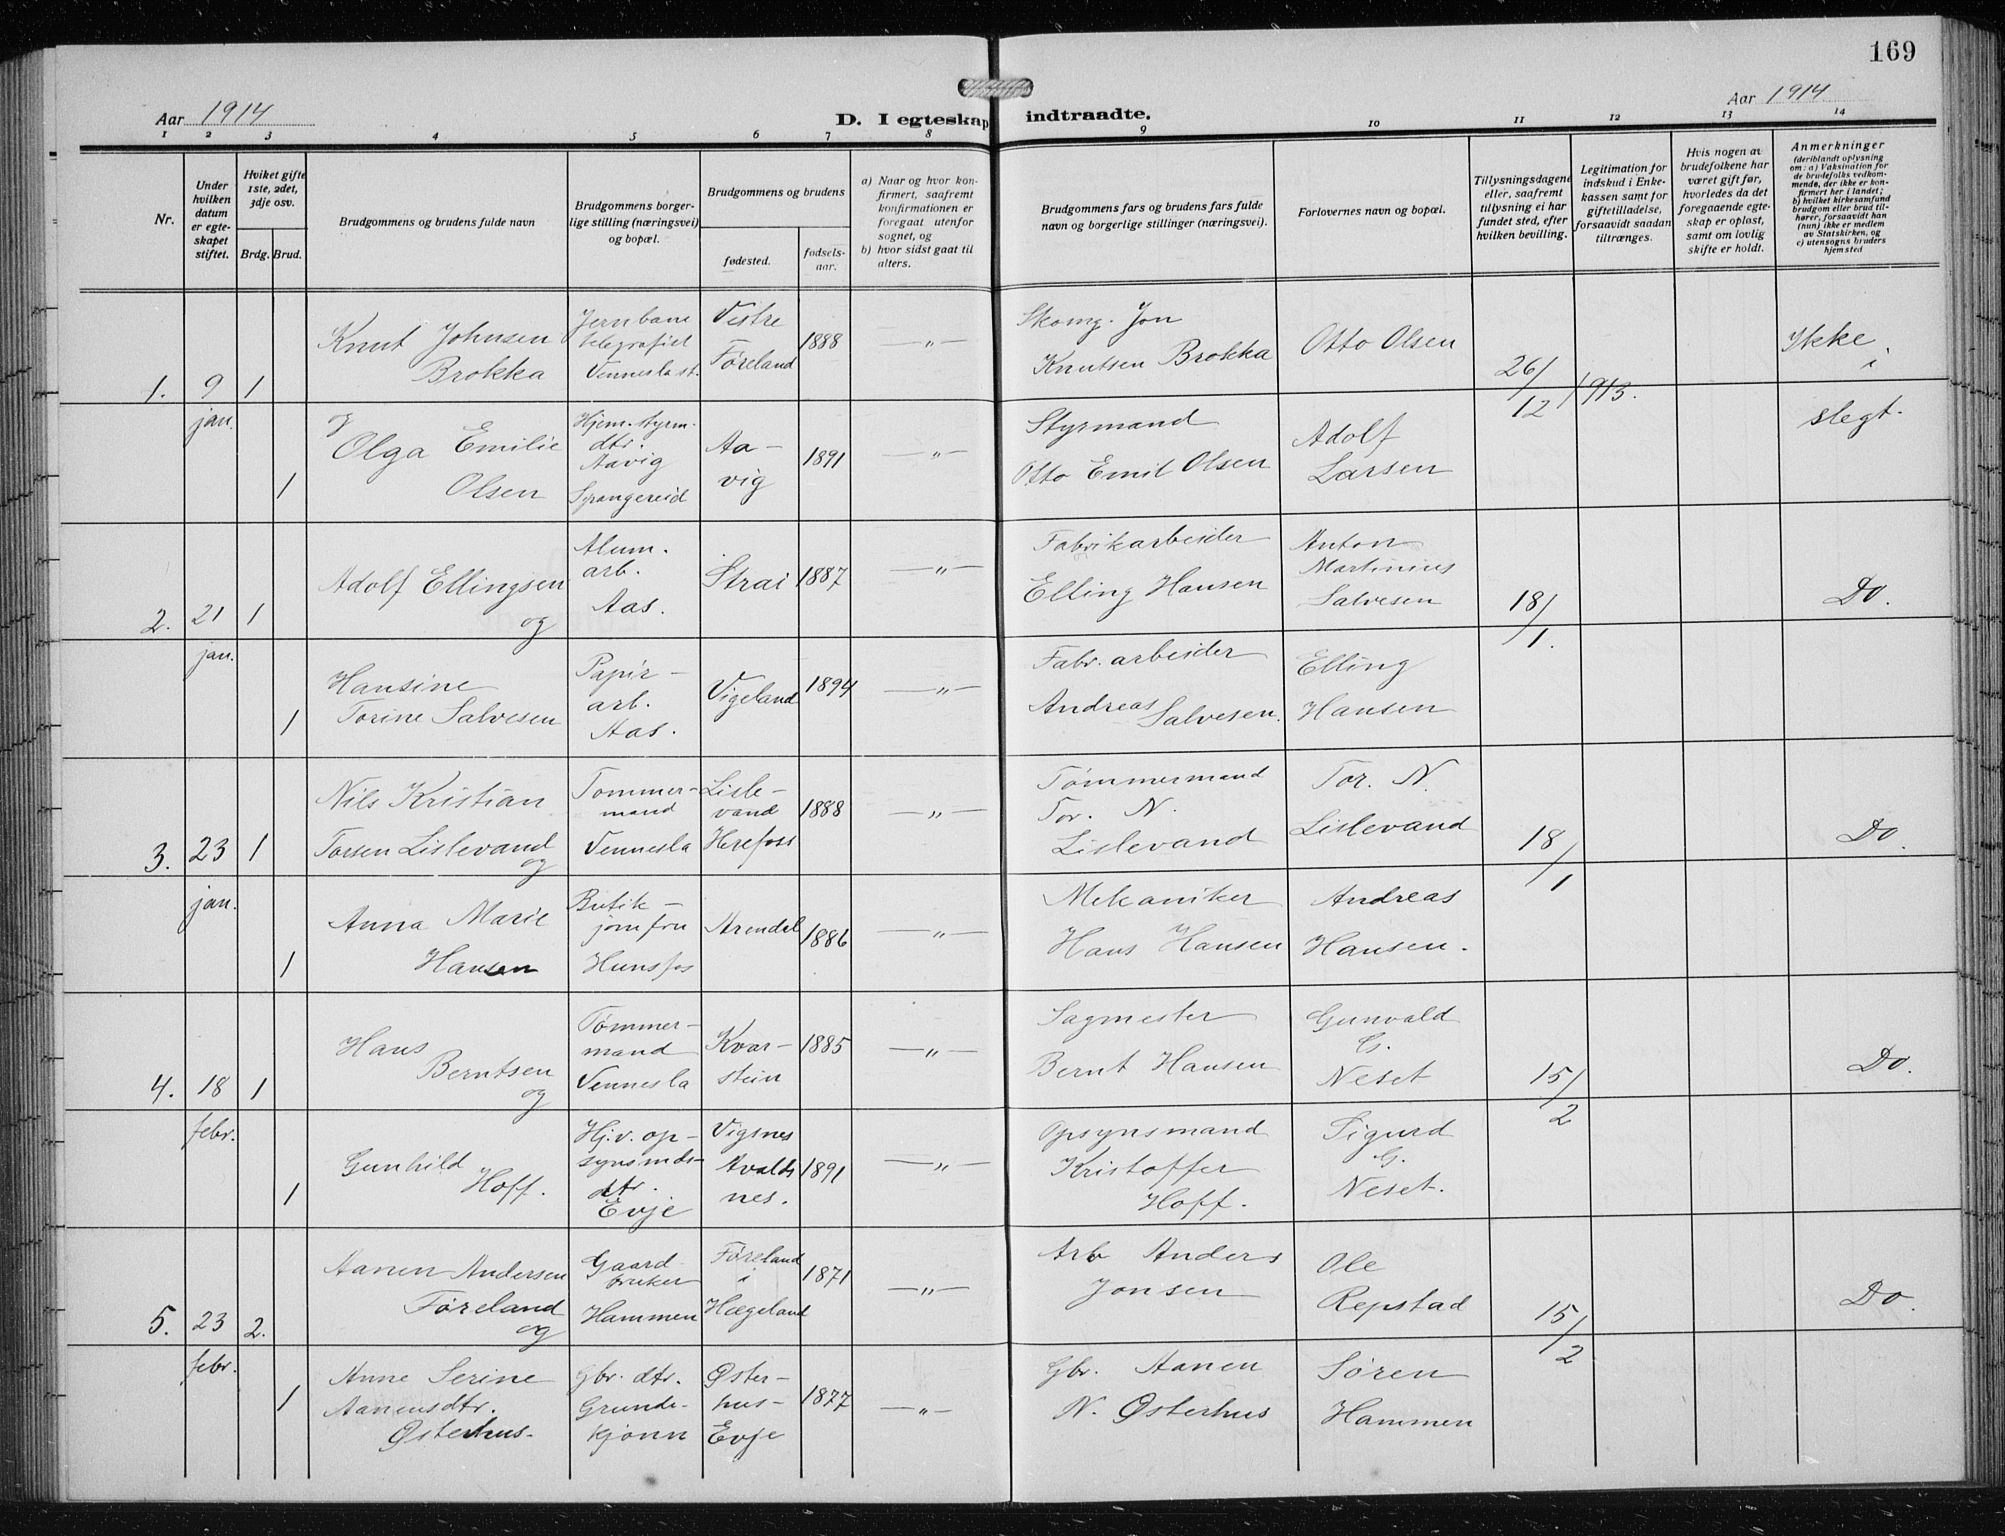 169
Aar 1914
D. I egteskap indtraadte.
Aar 1914
1 2 3 4 5 6 7 8 9 10 11 12 13 14
Nr.
Under hvilken datum er egteskapet stiftet.
Hvilket gifte 1ste, 2det, 3dje osv.
Brdg. Brud.
Brudgommens og brudens fulde navn
Brudgommens borgerlige stilling (næringsvei) og bopæl.
Brudgommens og brudens
fødested.
fødselsaar.
a) Naar og hvor konfirmert, saafremt konfirmationen er foregaat utenfor sognet, og
b) hvor sidst gaat til alters.
Brudgommens fars og brudens fars fulde navn og borgerlige stillinger (næringsvei).
Forlovernes navn og bopæl.
Tillysningsdagene eller, saafremt tillysning ei har fundet sted, efter hvilken bevilling.
Legitimation for indskud i Enkekassen samt for giftetilladelse, forsaavidt saadan tiltrænges.
Hvis nogen av brudefolkene har været gift før, hvorledes da det foregaaende egteskap er opløst, samt om lovlig skifte er holdt.
Anmerkninger
(deriblandt oplysning om: a) Vaksination for de brudefolks vedkommende, der ikke er konfirmert her i landet; b) hvilket kirkesamfund brudgom eller brud tilhører, forsaavidt han (hun) ikke er medlem av Statskirken, og c) utensogns bruders hjemsted
1. 9 jan. 1 Knut Johnsen Brokka og Jernbane telegrafist Vennesla st. Vestre Føreland 1888 —„— Skomg. Jon Knutsen Brokka Otto Olsen 26/12 1913. Ikke i slegt.
1 Olga Emilie Olsen Hjem. styrm. dtr. Aavig Spangereid Aavig 1891 —„— Styrmand Otto Emil Olsen Adolf Larsen
2. 21 jan. 1 Adolf Ellingsen og Alum. arb. Aas. Strai 1887 —„— Fabrikarbeider Elling Hansen Anton Martinius Salvesen 18/1. Do.
1 Hansine Torine Salvesen Papir-arb. Aas. Vigeland 1894 —„— Fabr. arbeider Andreas Salvesen. Elling Hansen
3. 23 jan. 1 Nils Kristian Torsen Lislevand og Tømmermand Vennesla Lislevand Herefoss 1888 —„— Tømmermand Tor. N. Lislevand Tor. N. Lislevand 18/1 Do.
1 Anna Marie Hansen Butikjomfru Hunsfos Arendal 1886 —„— Mekaniker Hans Hansen Andreas Hansen.
4. 18 febr. 1 Hans Berntsen og Tømmermand Vennesla Kvarstein 1885 —„— Sagmester Bernt Hansen Gunvald G. Neset 15/2 Do.
1 Gunhild Hoff. Hj.v. opsynsmds-dtr. Evje Vigsnes Avaldsnes. 1891 —„— Opsynsmand Kristoffer Hoff. Sigurd G. Neset.
5. 23 febr. 2. Aanen Andersen Føreland og Gaardbruker Hammen Føreland i Hægeland 1871 —„— Arb Anders Jonsen Ole Repstad 15/2 Do.
1 Anne Serine Aanensdtr. Østerhus. Gbr. dtr. Grundekjønn Østerhus- Evje 1877 —„— Gbr. Aanen N. Østerhus Søren Hammen